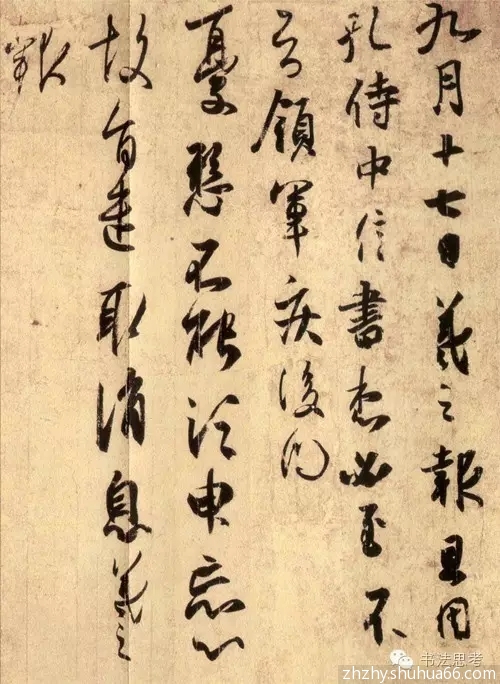 九月十七日羲之報且因
孔侍中信書想必至不
知領軍疾後問
憂懸不能須臾忘心
故旨遣取消息羲之
報
书法思考
zhzhy.shuhua66.com